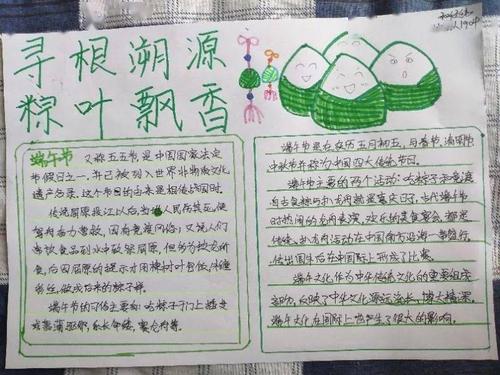 寻根朔源
粽叶飘香
端午节 又称五五节是中国国家法定
节假日之一,并已被列入世界非物质文化
遗产名录。这个节日的由来是相传战国时.
传说屈原投江以后当地人民伤其死,便
驾舟奋力营救,因有竞渡风俗;又说人们
常投食品到水中致祭屈原,但多为蛟龙所
食,后因屈原的提示才用楝树叶包饭,外缠
彩丝,做成后来的粽子样.
端午节的习俗主要有:吃粽子,门上插艾
或菖蒲驱邪,系长命缕,
端午节是在农历五月初五,与春节,清明节
中秋节并称为中国四大传统节日。
端午节主要的两个活动:吃粽子和竞渡
自古食粽与扒龙舟就是喜庆日子,古代端午节
时热闹的龙舟表演,欢乐的美食宴会,都是
传统,扒龙舟活动在中国南方沿海一带盛行,
传出国外后在国际上形成了比赛。
端午文化作为中华传统文化的重要组成
部分,反映了中华文化源远流长,博大精深,
端午文化在国际上也产生了很大的影响。